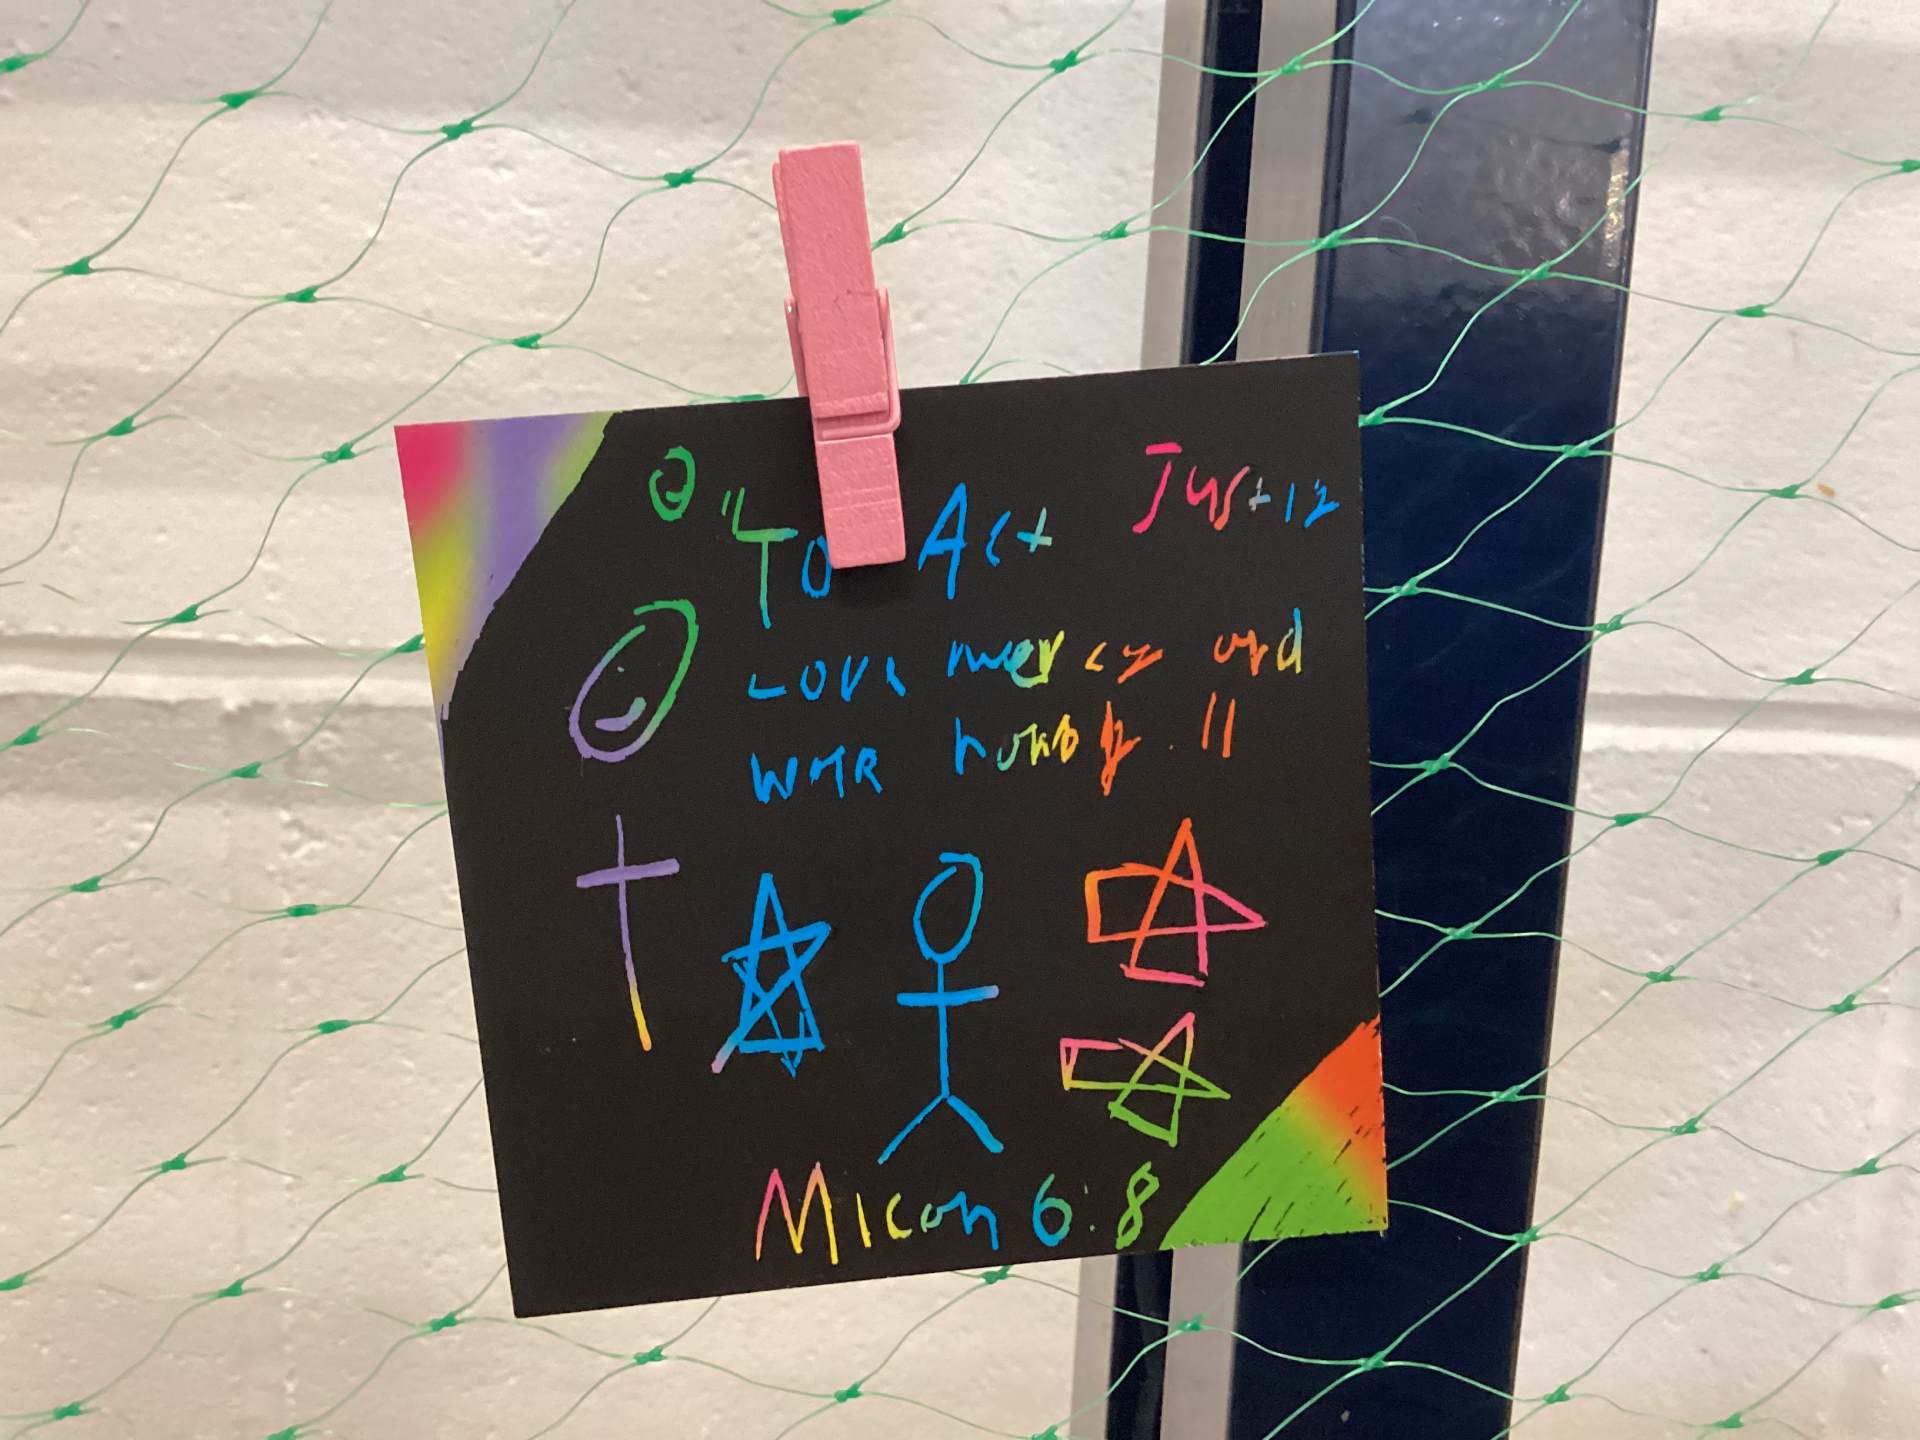 "To Act Justly
Love mercy and
walk humbly."
Micah 6:8